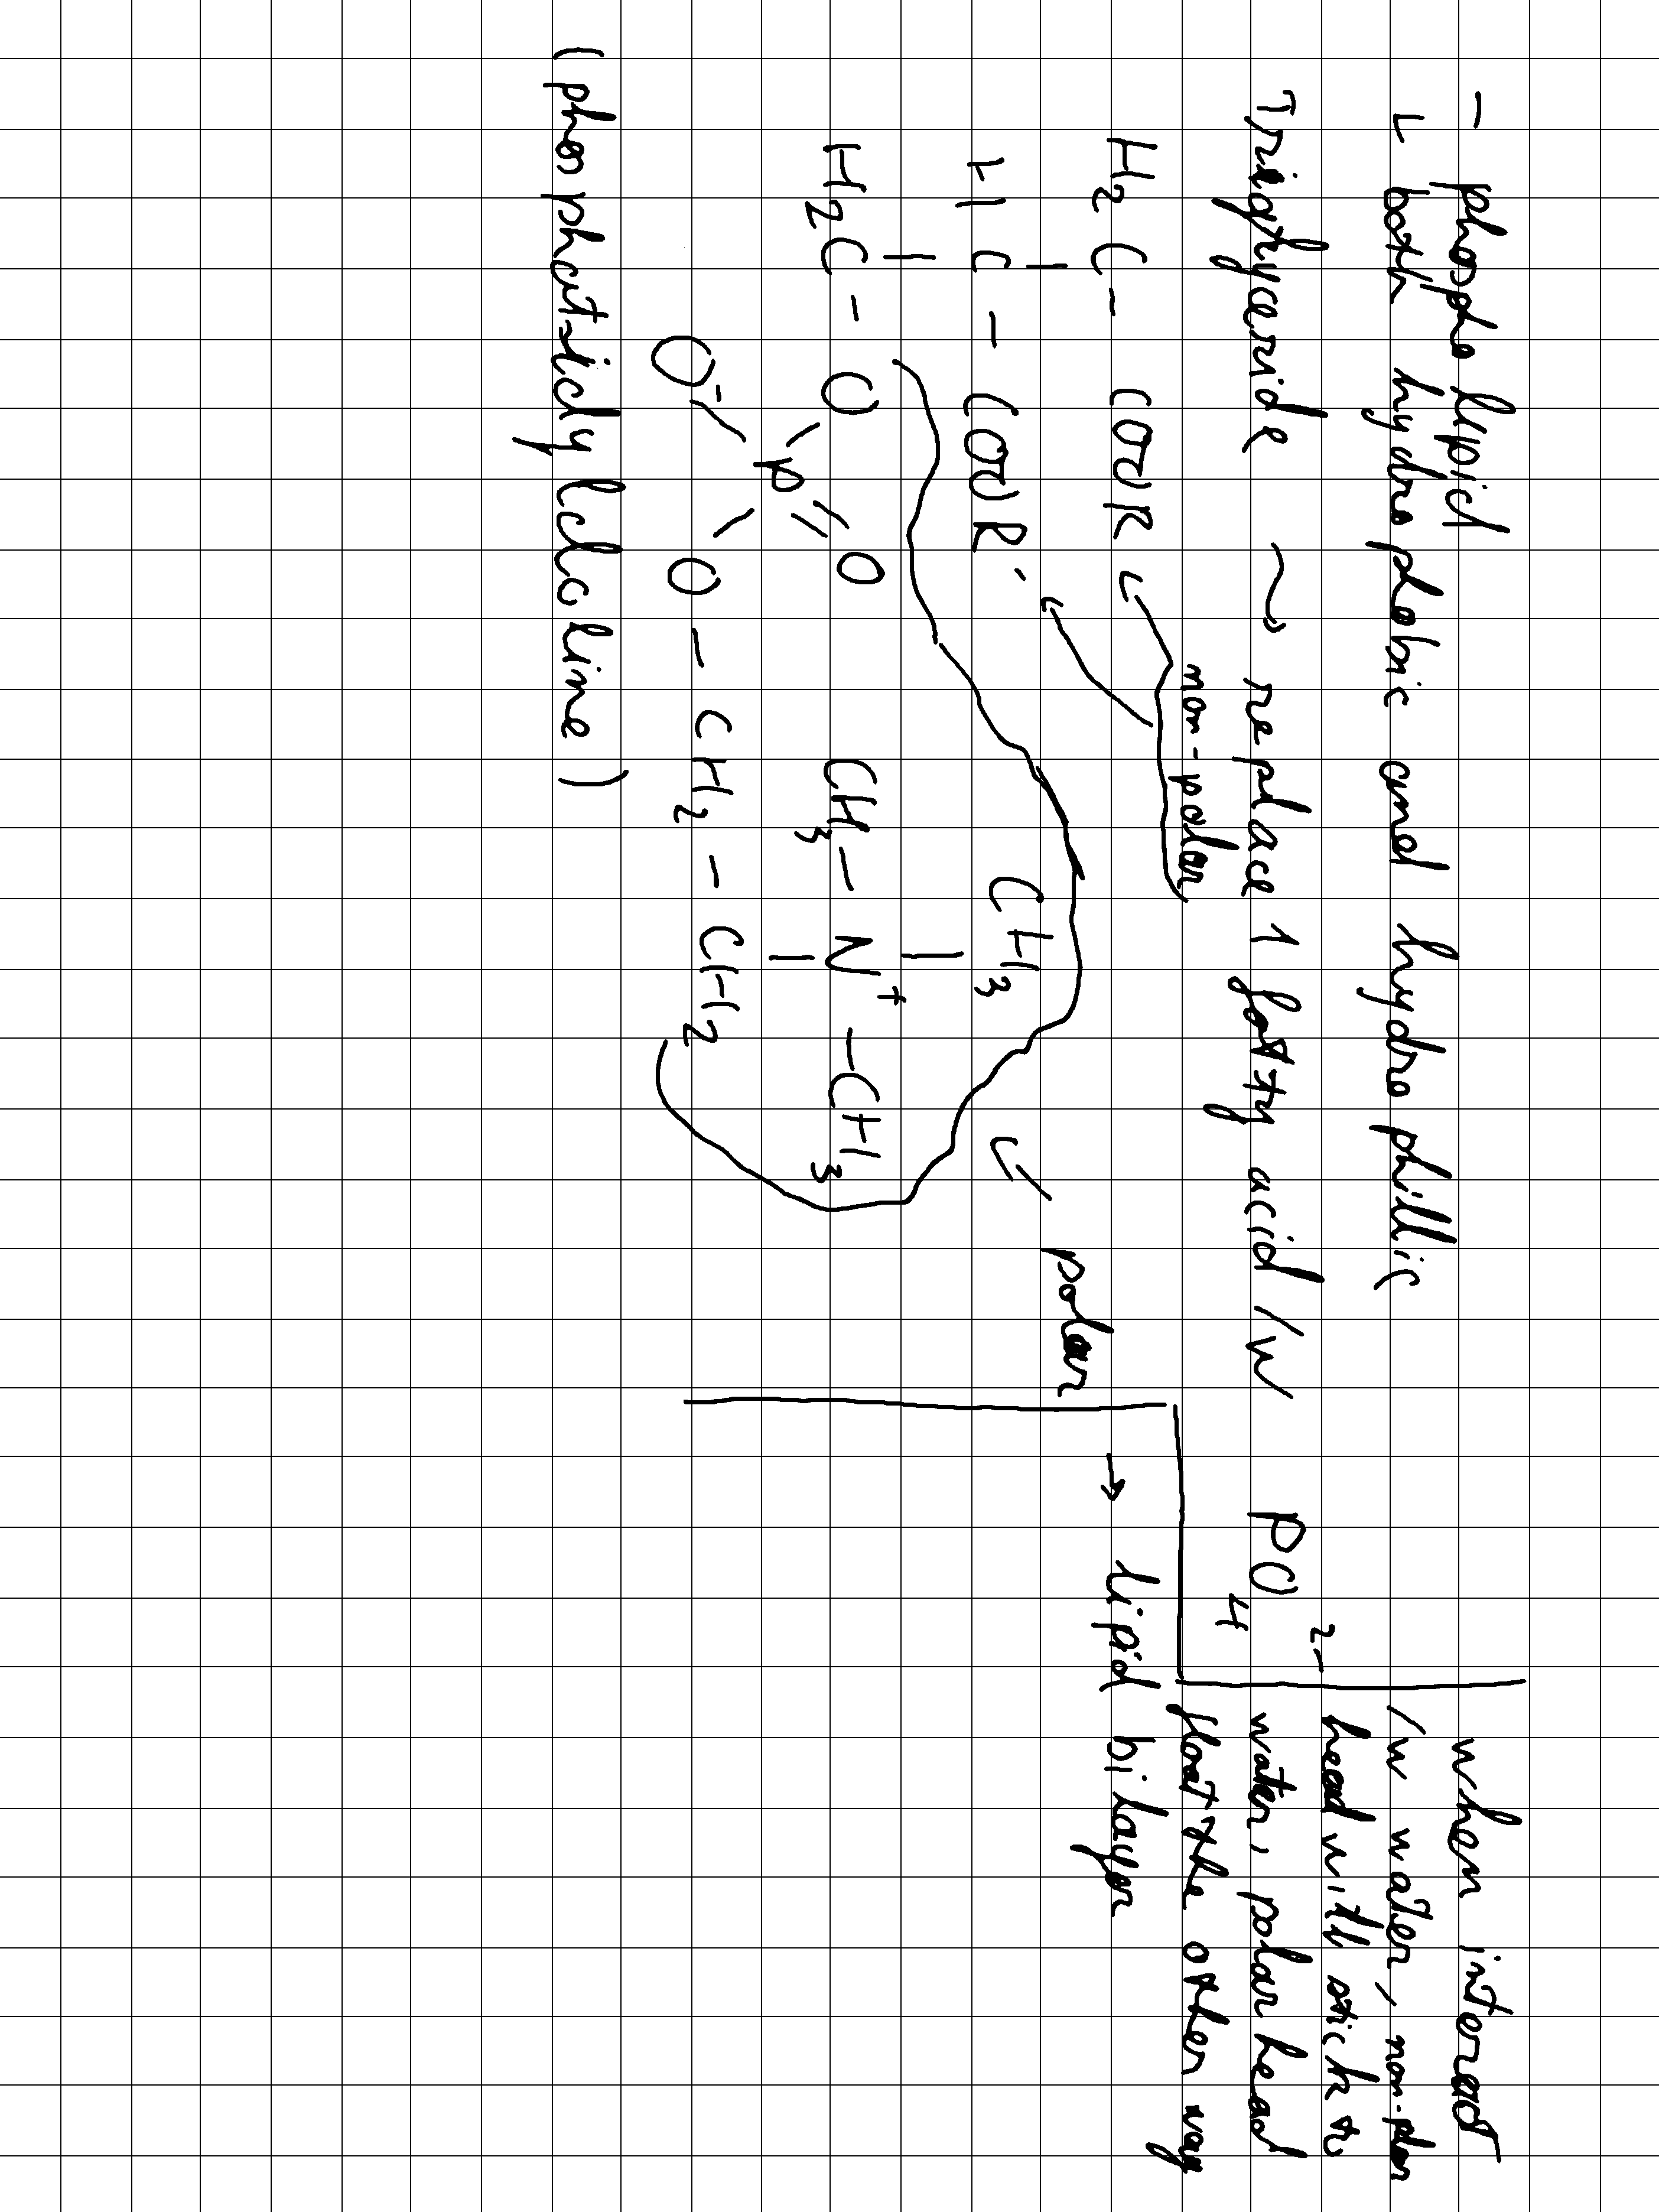 - phospho lipid
↳ both hydrophobic and hydrophillic
Triglyceride → replace 1 fatty acid /w PO4 2-
non-polar
H2C - COOR
HC - COOR'
H2C - O
P = O
O-
O - CH2 - CH2
CH3
CH3 - N+ - CH3
polar
(phosphatidylcholine)
when interact
/w water, non-polar
head will stick to
water, polar head
float the other way
→ lipid bilayer